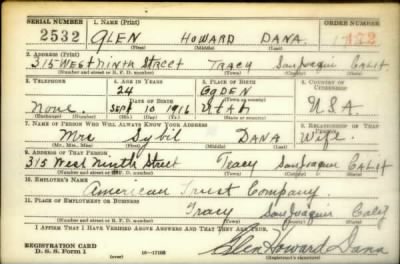 SERIAL NUMBER 1. NAME (Print) ORDER NUMBER
2532 GLEN HOWARD DANA.
(First) (Middle) (Last)
2. ADDRESS (Print)
315 WEST NINTH STREET TRACY San Joaquin CALIF
(Number and street or R. F. D. number) (Town) (County) (State)
3. TELEPHONE 4. AGE IN YEARS 5. PLACE OF BIRTH 6. COUNTRY OF CITIZENSHIP
24 OGDEN
DATE OF BIRTH
None Sept 10 1916 UTAH U.S.A.
(Exchange) (Number) (Mo.) (Day) (Yr.) (State or country)
7. NAME OF PERSON WHO WILL ALWAYS KNOW YOUR ADDRESS 8. RELATIONSHIP OF THAT PERSON
Mrs Sybil DANA Wife.
(Mr., Mrs., Miss) (First) (Middle) (Last)
9. ADDRESS OF THAT PERSON
315 West Ninth Street Tracy San Joaquin CALIF
(Number and street or R. F. D. number) (Town) (County) (State)
10. EMPLOYER'S NAME
American Trust Company
11. PLACE OF EMPLOYMENT OR BUSINESS
Tracy San Joaquin Calif
(Number and street or R. F. D. number) (Town) (County) (State)
I AFFIRM THAT I HAVE VERIFIED ABOVE ANSWERS AND THAT THEY ARE TRUE.
REGISTRATION CARD
D. S. S. Form 1 (over) Glen Howard Dana
(Registrant's signature)